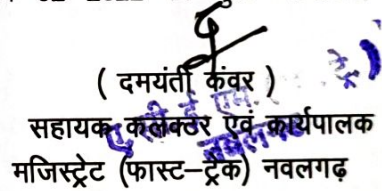 ( दमयंती कंवर )
सहायक कलक्टर एवं कार्यपालक
मजिस्ट्रेट (फास्ट-ट्रेक) नवलगढ़